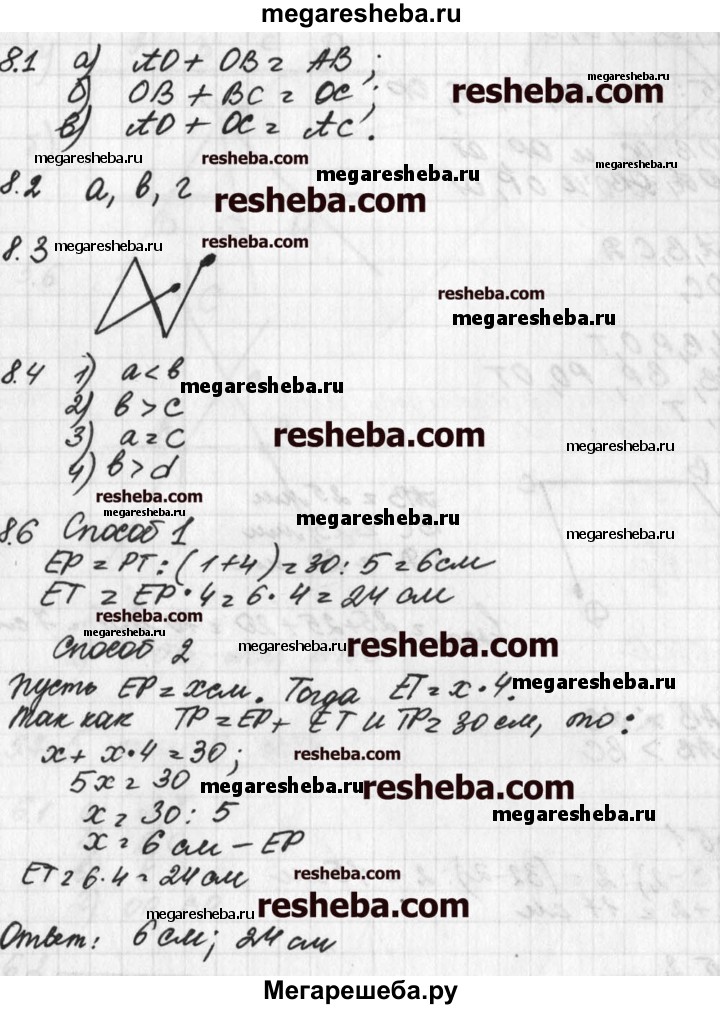 megaresheba.ru
8.1 а) AO + OB = AB;
б) OB + BC = OC;
resheba.com
megaresheba.ru
в) AO + OC = AC.
megaresheba.ru
resheba.com
megaresheba.ru
8.2 а, в, г
resheba.com
8.3
megaresheba.ru
resheba.com
resheba.com
megaresheba.ru
8.4 1) a < b
megaresheba.ru
2) b > c
3) a = c
resheba.com
megaresheba.ru
4) b > d
resheba.com
megaresheba.ru
megaresheba.ru
8.6 Способ 1
megaresheba.ru
EP = PT : (1+4) = 30 : 5 = 6 см
ET = EP · 4 = 6 · 4 = 24 см
resheba.com
megaresheba.ru
Способ 2
resheba.com
Пусть EP = x см. Тогда ET = x · 4.
megaresheba.ru
Так как TP = EP + ET и TP = 30 см, то:
x + x · 4 = 30;
resheba.com
5x = 30
megaresheba.ru
resheba.com
x = 30 : 5
megaresheba.ru
x = 6 см – EP
ET = 6 · 4 = 24 см
resheba.com
megaresheba.ru
resheba.com
Ответ: 6 см; 24 см
Мегарешеба.ру